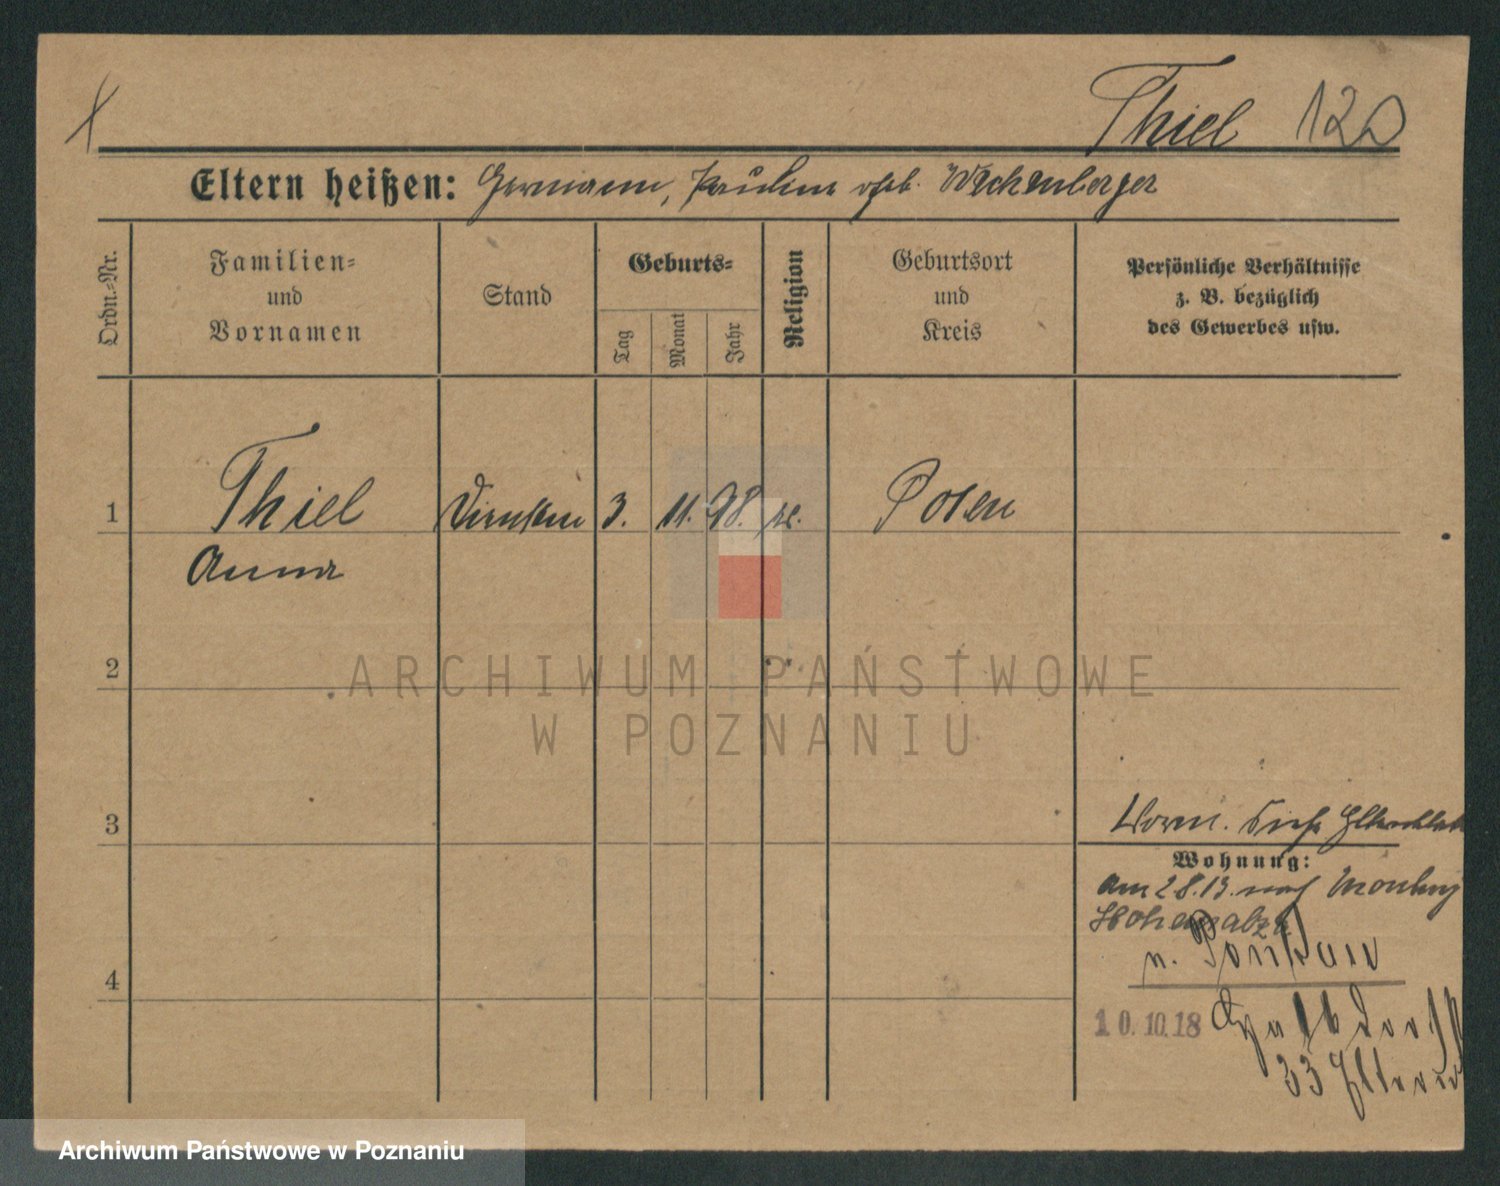 Thiel 120
Eltern heißen: Hermann, Pauline geb. Wachenberger
Ordn.-Nr.
Familien-
und
Vornamen
Stand
Geburts-
Tag
Monat
Jahr
Religion
Geburtsort
und
Kreis
Persönliche Verhältnisse
z. B. bezüglich
des Gewerbes usw.
1 Thiel 3. 11. 98. Posen
Anna
2
3
Wohnung:
am 2 8.13. nach
Hohensalza
n.
4
10.10.18
33 Eltern
ARCHIWUM PAŃSTWOWE
W POZNANIU
Archiwum Państwowe w Poznaniu